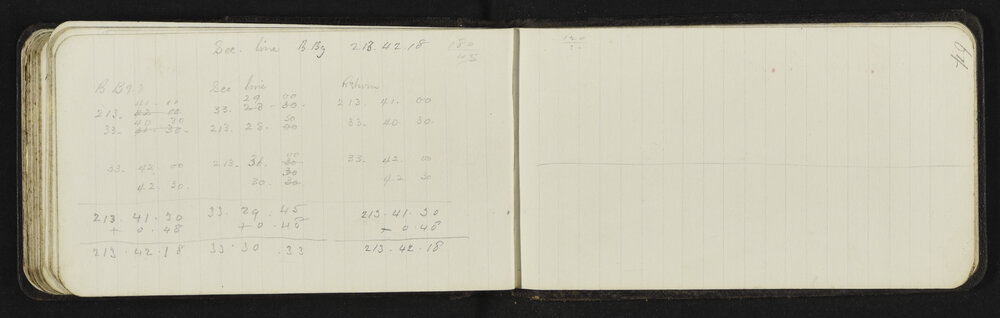 Sec. line R By 213.42.18 180
45
Sec line Return
41 10 29 00
213. 42 00 33. 28. 30. 213. 41. 00
40 30 30
33. 30. 213. 28. 00 33. 40 30.
33. 42. 00 213. 31. 00 33. 42. 00
30
30
42. 30. 30. 30 42 30
213. 41. 30 33. 29. 45 213. 41. 30
+ 0.48 + 0.48 + 0.48
213.42.18 33.30.33 213.42.18
64